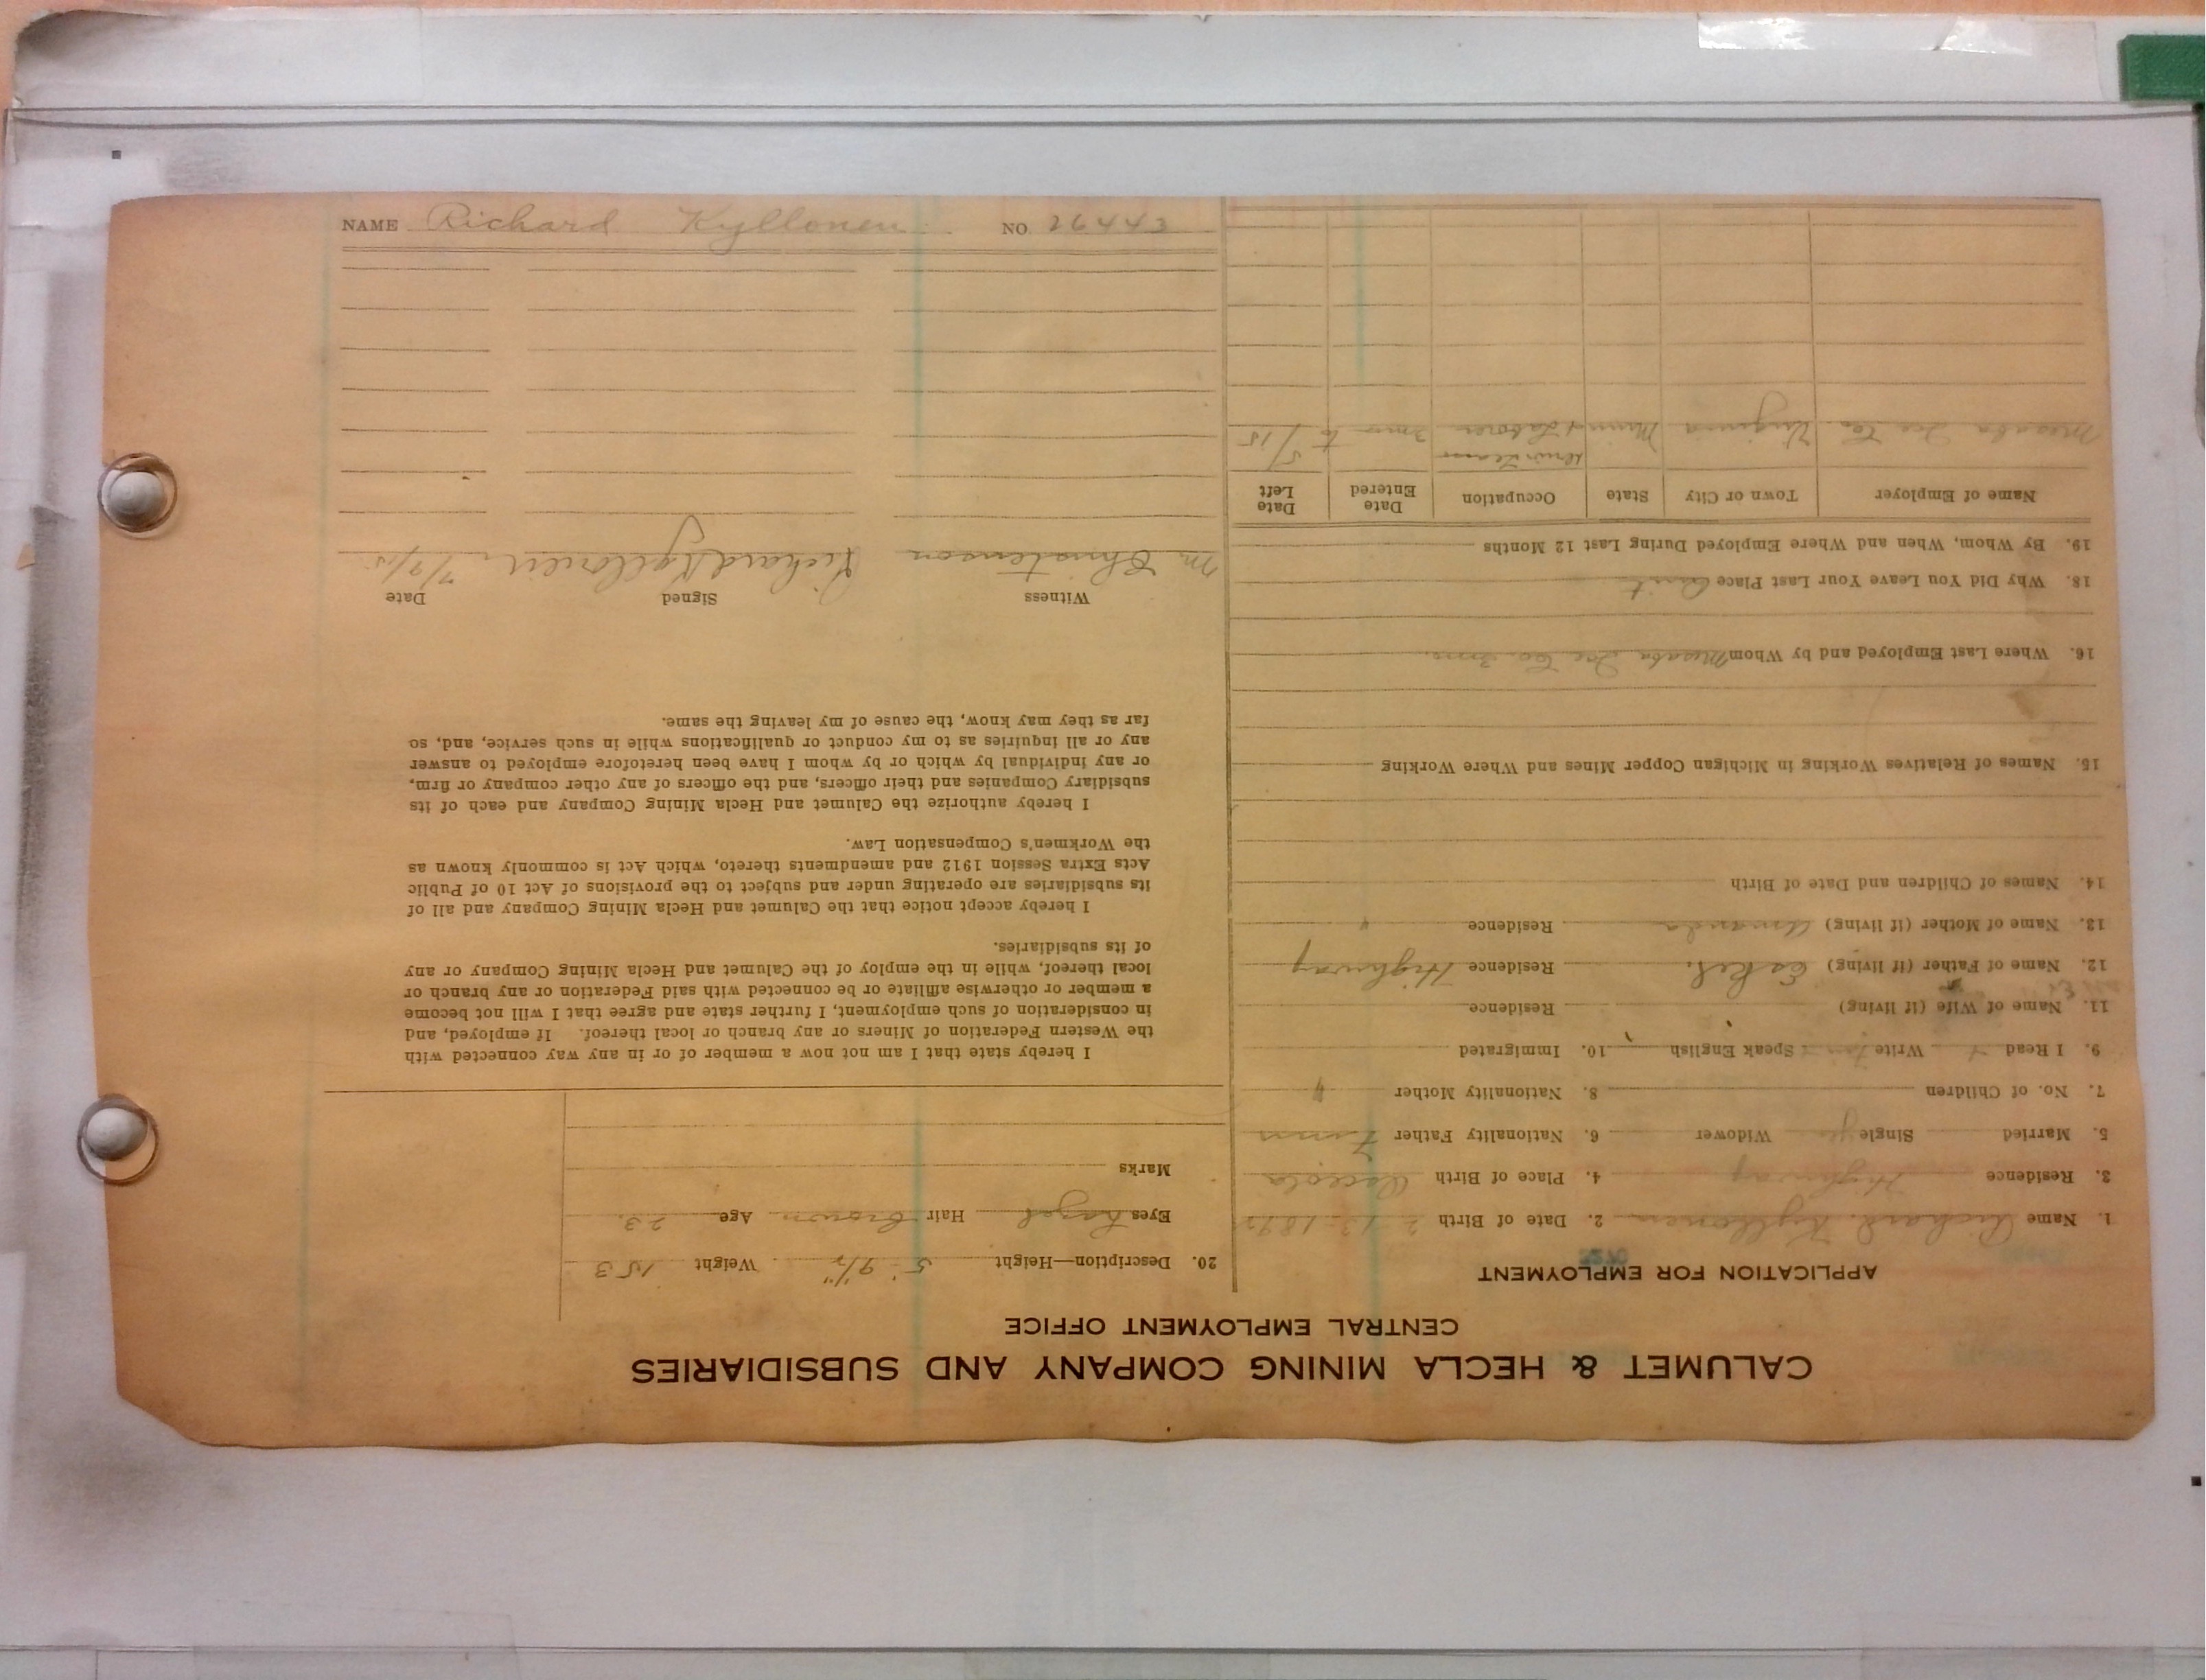 CALUMET & HECLA MINING COMPANY AND SUBSIDIARIES
CENTRAL EMPLOYMENT OFFICE
APPLICATION FOR EMPLOYMENT
1. Name Richard Kyllonen 2. Date of Birth 2-13-189
3. Residence Highway 4. Place of Birth Osceola
5. Married Single yes Widower 6. Nationality Father Finn
7. No. of Children 8. Nationality Mother "
9. I Read Write Speak English 10. Immigrated
11. Name of Wife (if living) Residence
12. Name of Father (if living) Eskel. Residence Highway
13. Name of Mother (if living) Amanda Residence "
14. Names of Children and Date of Birth
15. Names of Relatives Working in Michigan Copper Mines and Where Working
16. Where Last Employed and by Whom Mesaba Ice Co. 3 mo.
18. Why Did You Leave Your Last Place Quit
19. By Whom, When and Where Employed During Last 12 Months
Name of Employer Town or City State Occupation Date Entered Date Left
Mesaba Ice Co. Virginia Minn Laborer 3 mos to 5/15
20. Description—Height 5' 9 1/2" Weight 153
Eyes hazel Hair brown Age 23
Marks
I hereby state that I am not now a member of or in any way connected with
the Western Federation of Miners or any branch or local thereof. If employed, and
in consideration of such employment, I further state and agree that I will not become
a member or otherwise affiliate or be connected with said Federation or any branch or
local thereof, while in the employ of the Calumet and Hecla Mining Company or any
of its subsidiaries.
I hereby accept notice that the Calumet and Hecla Mining Company and all of
its subsidiaries are operating under and subject to the provisions of Act 10 of Public
Acts Extra Session 1912 and amendments thereto, which Act is commonly known as
the Workmen's Compensation Law.
I hereby authorize the Calumet and Hecla Mining Company and each of its
subsidiary Companies and their officers, and the officers of any other company or firm,
or any individual by which or by whom I have been heretofore employed to answer
any or all inquiries as to my conduct or qualifications while in such service, and, so
far as they may know, the cause of my leaving the same.
Witness Signed Date
M Christenson Richard Kyllonen 7/7/15
NAME Richard Kyllonen NO 26443